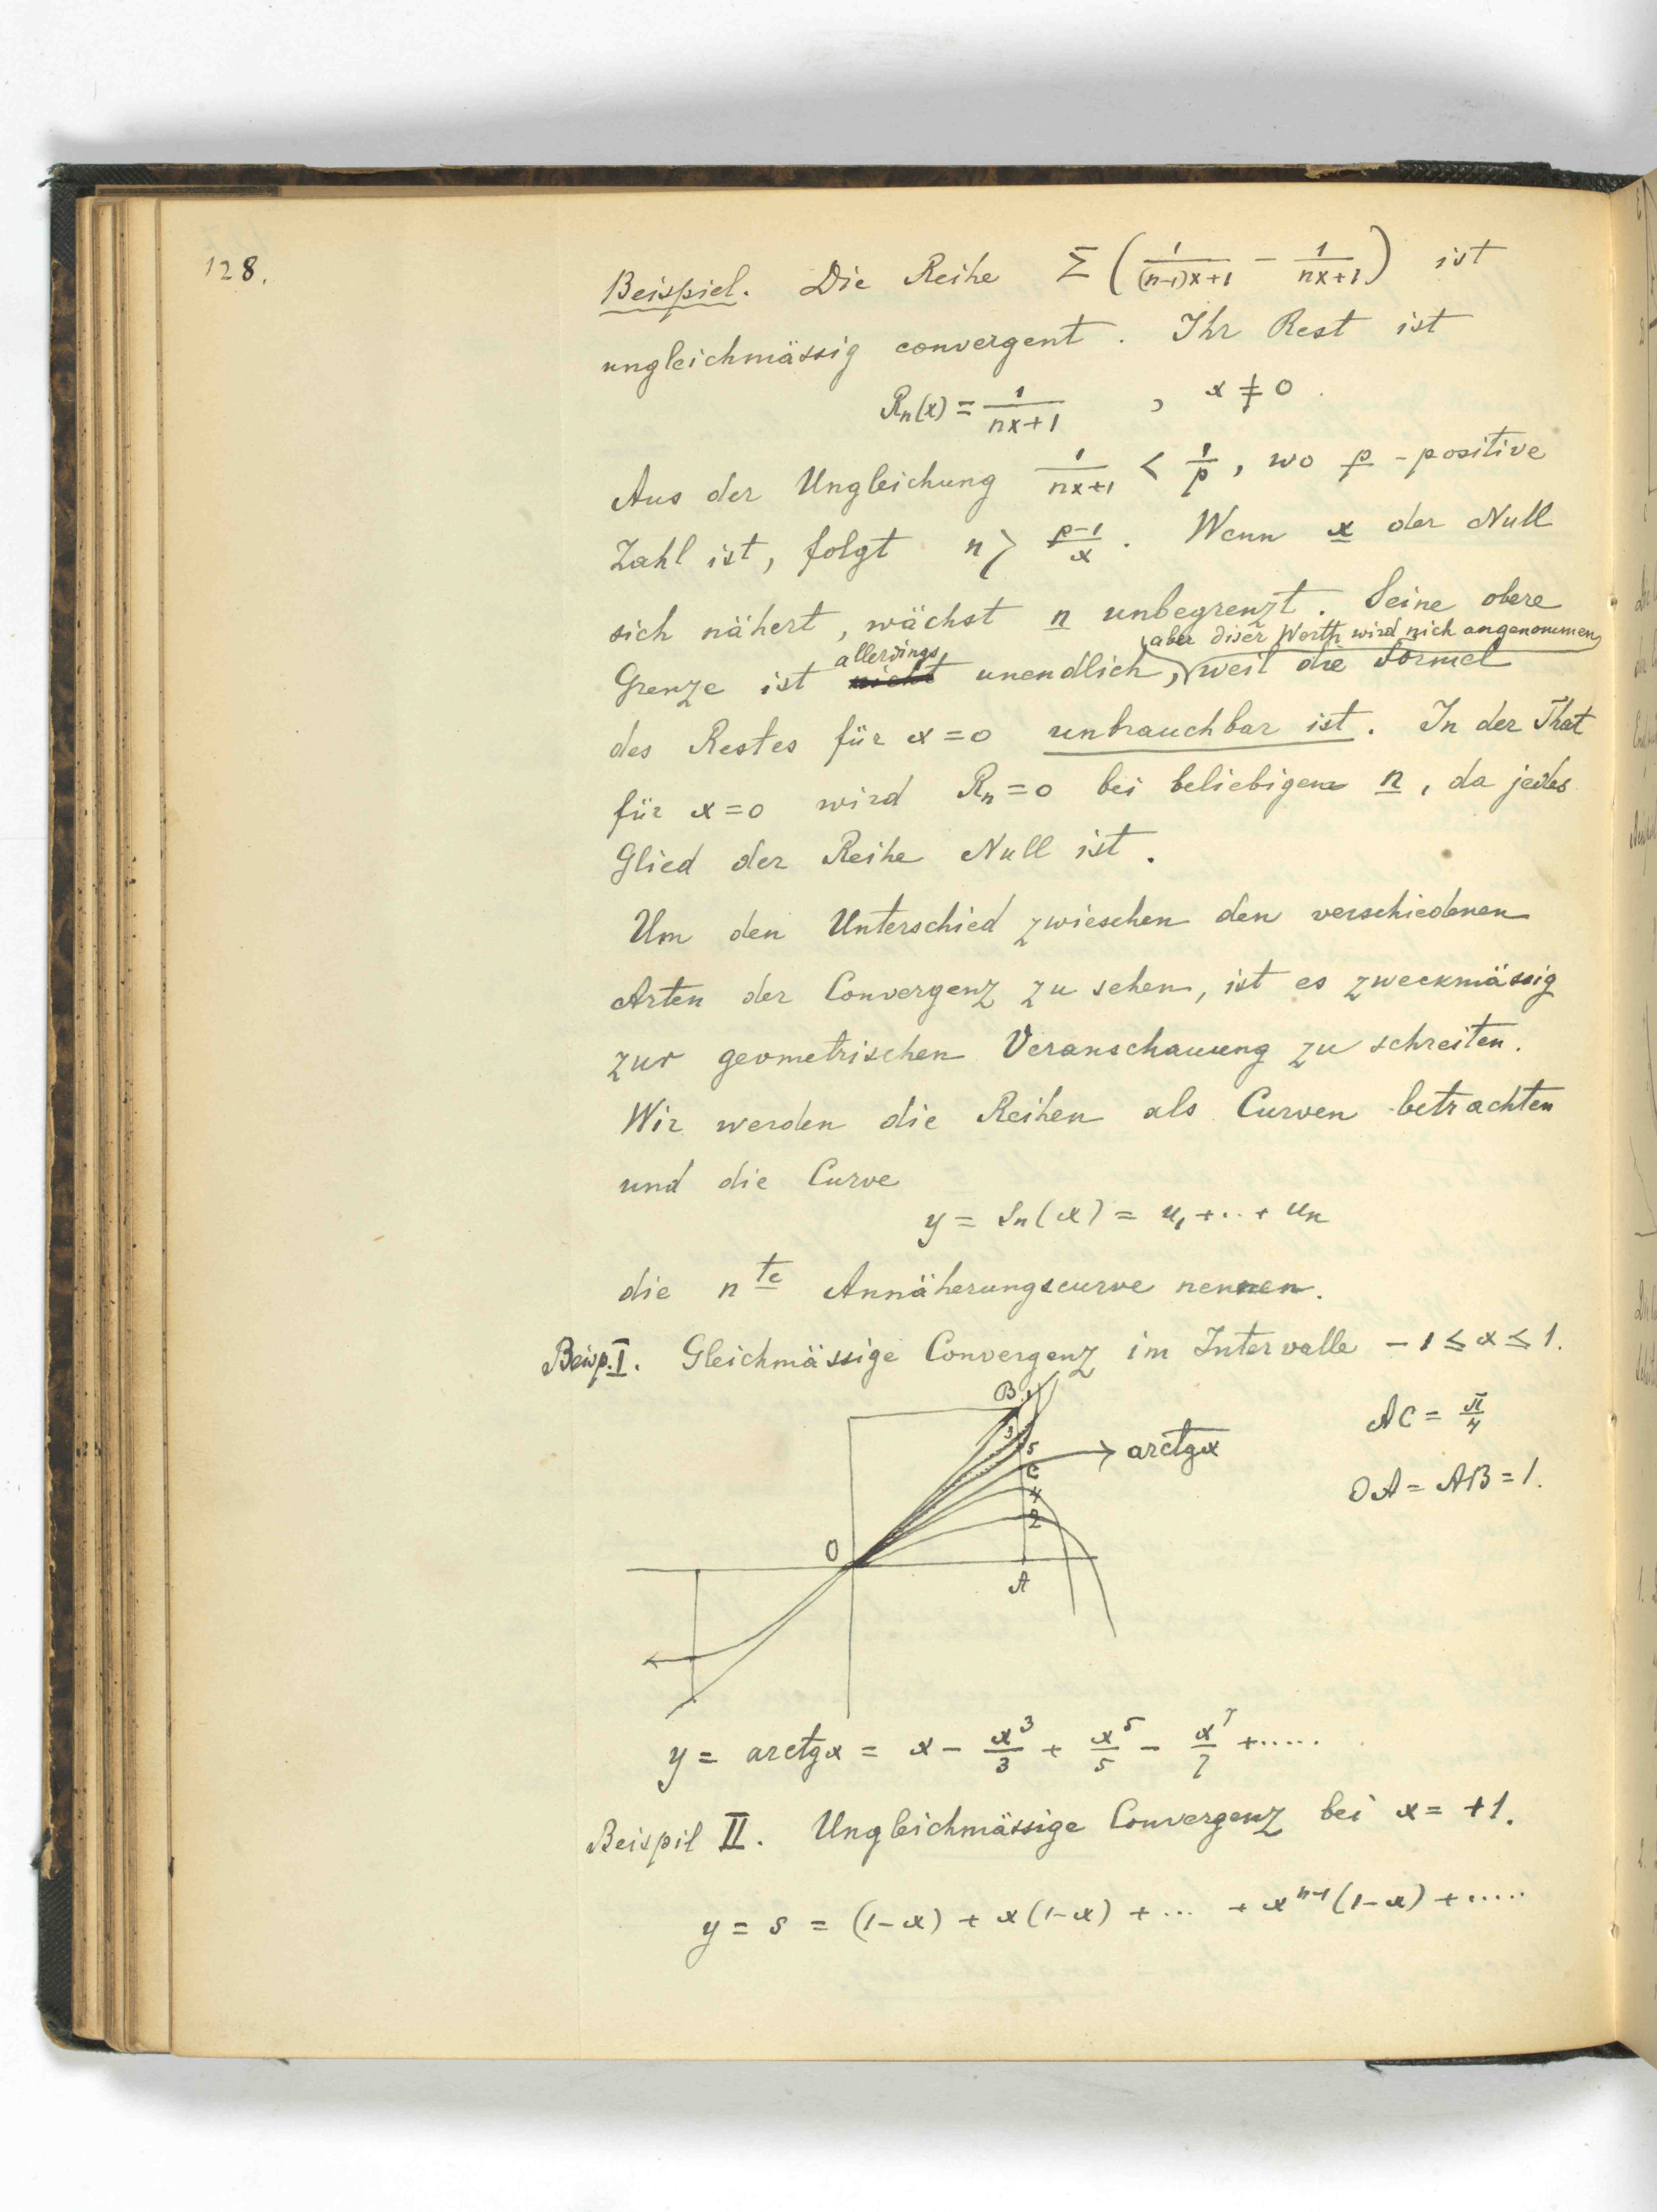 128.
Beispiel. Die Reihe Σ (1/((n-1)x+1) - 1/(nx+1)) ist
ungleichmässig convergent. Ihr Rest ist
Rn(x) = 1/(nx+1) , x ≠ 0.
Aus der Ungleichung 1/(nx+1) < 1/p, wo p - positive
Zahl ist, folgt n > (p-1)/x. Wenn x der Null
sich nähert, wächst n unbegrenzt. Seine obere
aber diser Werth wird nich angenommen
allerdings
Grenze ist nicht unendlich, weil die Formel
des Restes für x=0 unbrauchbar ist. In der That
für x=0 wird Rn=0 bei beliebigem n, da jedes
Glied der Reihe Null ist.
Um den Unterschied zwieschen den verschiedenen
Arten der Convergenz zu sehen, ist es zweckmässig
zur geometrischen Veranschauung zu schreiten.
Wir werden die Reihen als Curven betrachten
und die Curve
y = Sn(x) = u₁ + .. + un
die nte Annäherungscurve nennen.
Beisp. I. Gleichmässige Convergenz im Intervalle -1 ≤ x ≤ 1.
B 1
3
5
C
4
2
O
A
arctgx
AC = π/4
OA = AB = 1.
y = arctgx = x - x³/3 + x⁵/5 - x⁷/7 + .....
Beispil II. Ungleichmässige Convergenz bei x = +1.
y = s = (1-x) + x(1-x) + ... + xⁿ⁻¹(1-x) + .....